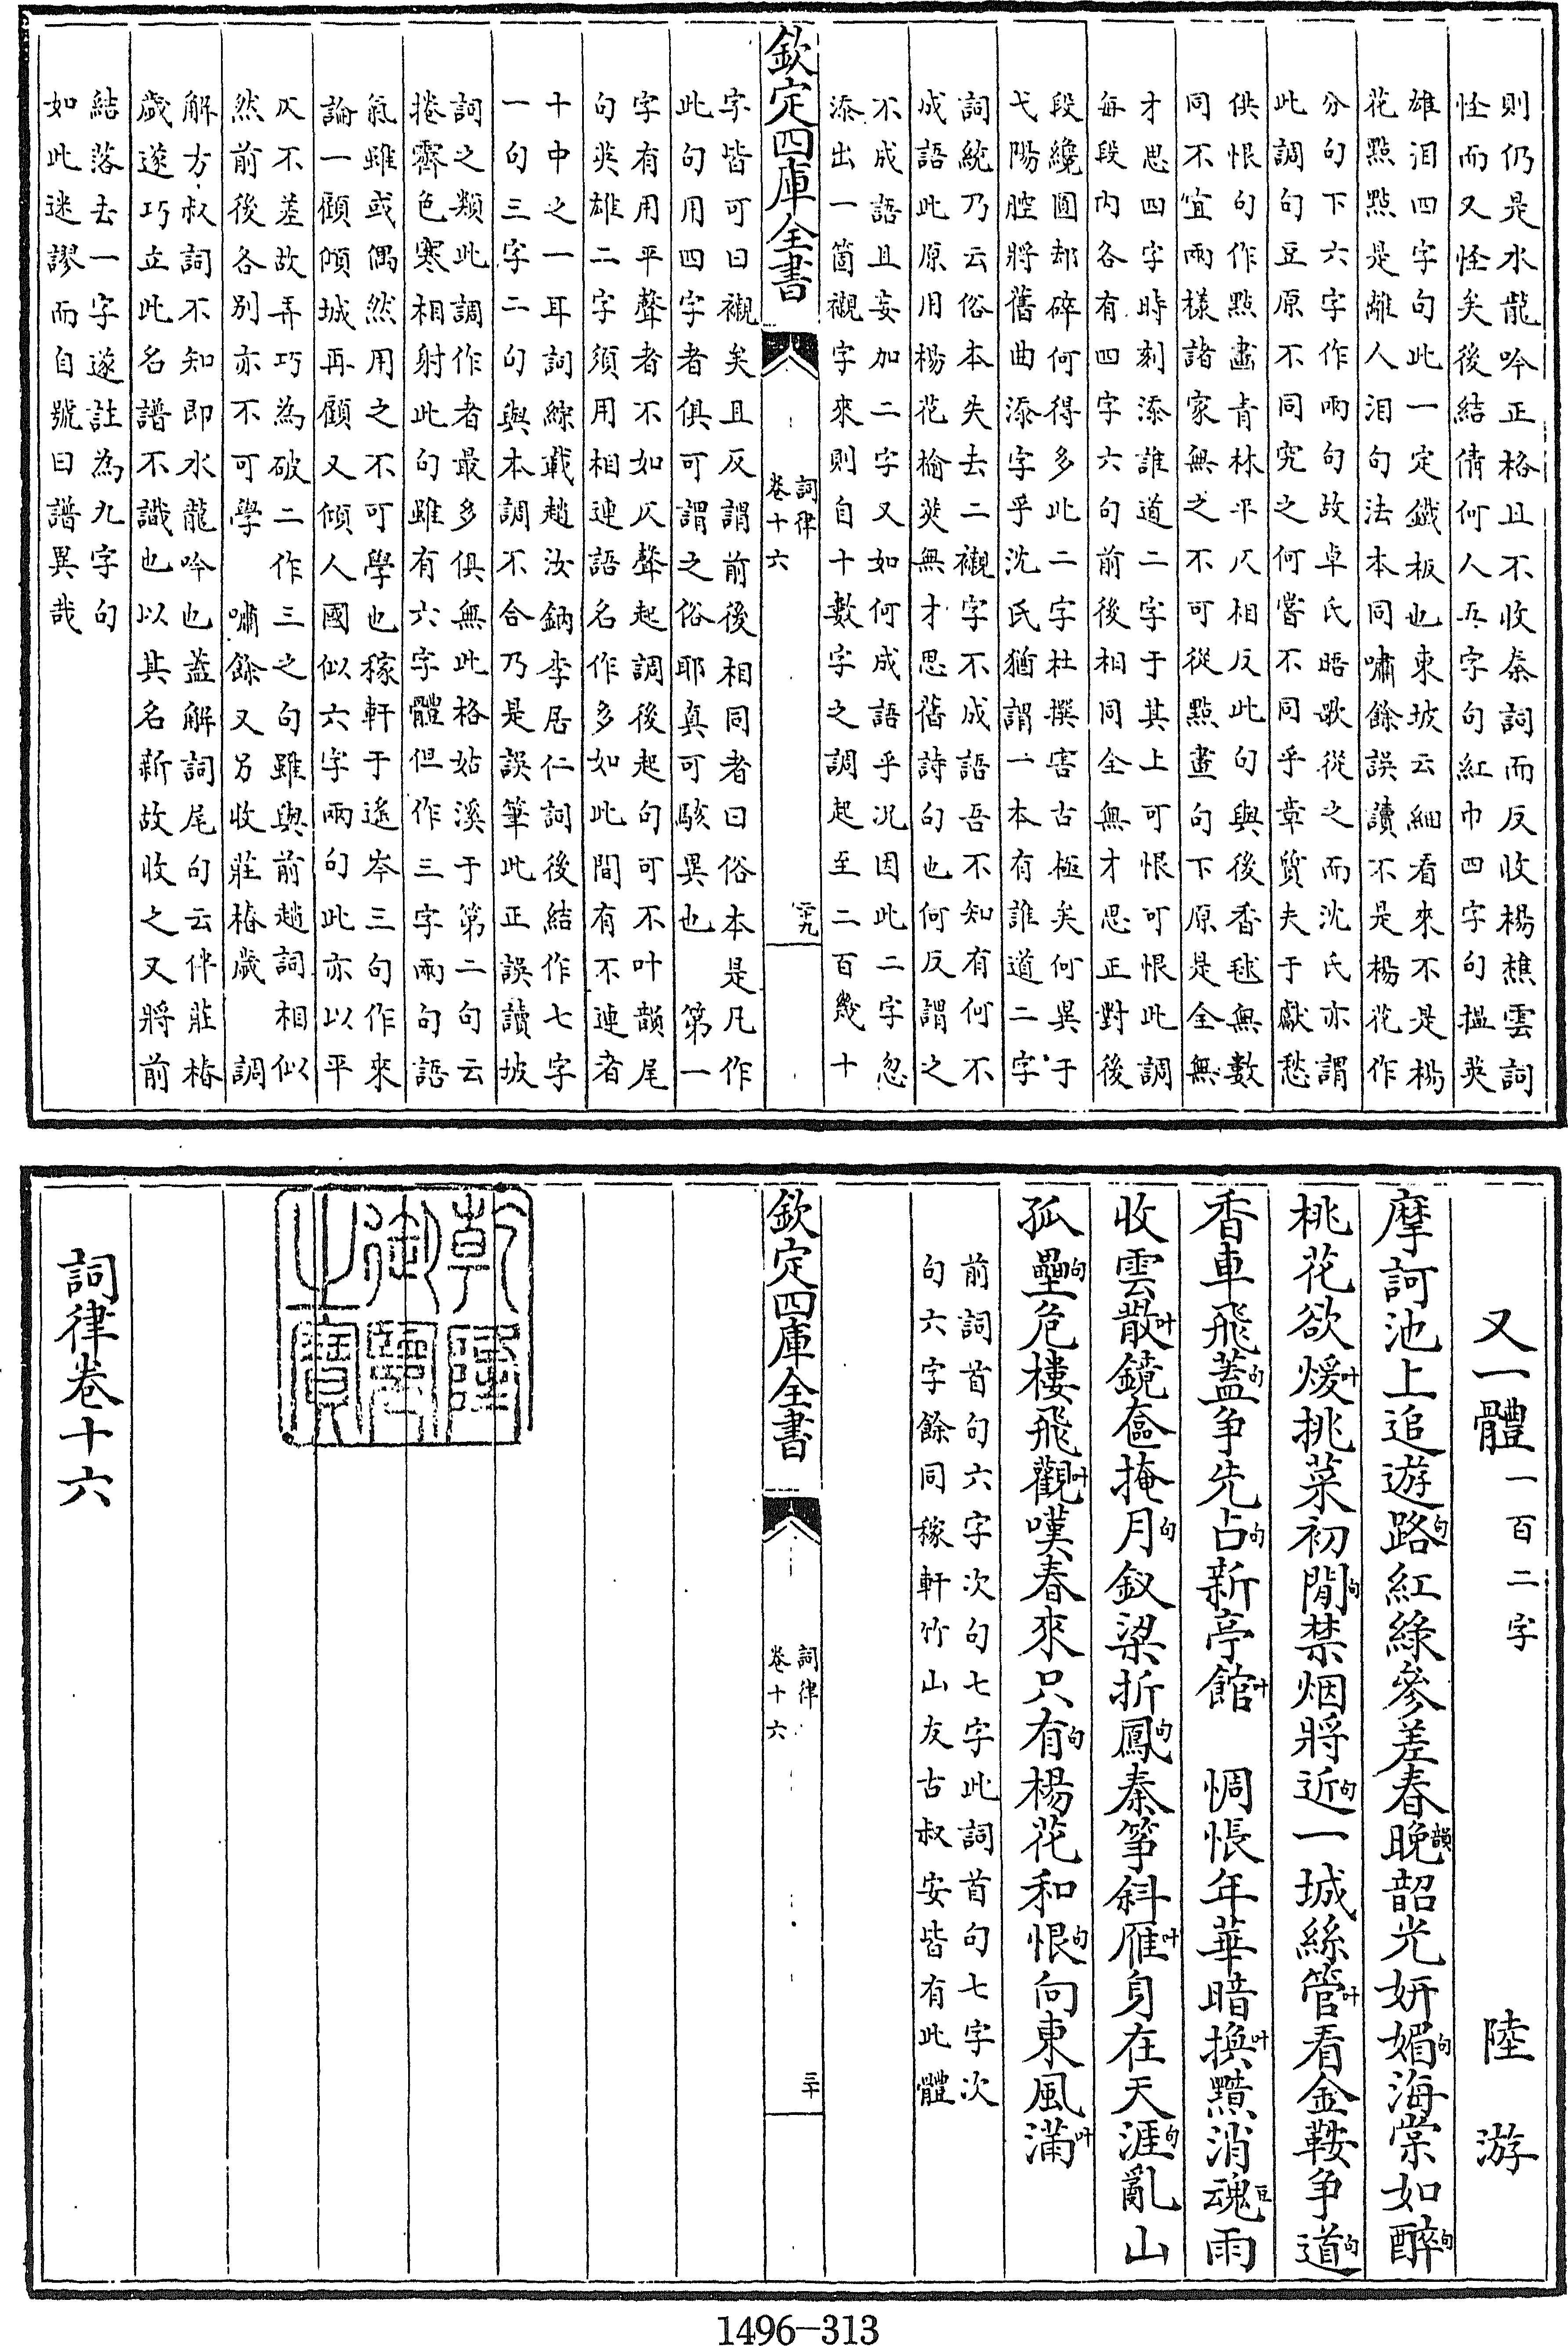 則仍是水龍吟正格且不收秦詞而反收楊樵雲詞
怪而又怪矣後結倩何人五字句紅巾四字句搵英
雄泪四字句此一定鐵板也東坡云細看來不是楊
花點點是離人泪句法本同嘯餘誤讀不是楊花作
分句下六字作兩句故卓氏晤歌從之而沈氏亦謂
此調句豆原不同究之何嘗不同乎章質夫于獻愁
供恨句作點畫青林平仄相反此句與後香毬無數
同不宜兩樣諸家無之不可從點畫句下原是全無
才思四字時刻添誰道二字于其上可恨可恨此調
每段內各有四字六句前後相同全無才思正對後
段纔圓却碎何得多此二字杜撰害古極矣何異于
弋陽腔將舊曲添字乎沈氏猶謂一本有誰道二字
詞統乃云俗本失去二襯字不成語吾不知有何不
成語此原用楊花榆莢無才思舊詩句也何反謂之
不成語且妄加二字又如何成語乎况因此二字忽
添出一箇襯字來則自十數字之調起至二百幾十
欽定四庫全書
詞律
卷十六
二十九
字皆可曰襯矣且反謂前後相同者曰俗本是凡作
此句用四字者俱可謂之俗耶真可駭異也　第一
字有用平聲者不如仄聲起調後起句可不叶韻尾
句英雄二字須用相連語名作多如此間有不連者
十中之一耳詞綜載趙汝鈉李居仁詞後結作七字
一句三字二句與本調不合乃是誤筆此正誤讀坡
詞之類此調作者最多俱無此格姑溪于第二句云
捲霽色寒相射此句雖有六字體但作三字兩句語
氣雖或偶然用之不可學也稼軒于遙岑三句作來
論一顧傾城再顧又傾人國似六字兩句此亦以平
仄不差故弄巧為破二作三之句雖與前趙詞相似
然前後各別亦不可學　嘯餘又另收莊椿歲　調
解方叔詞不知即水龍吟也蓋解詞尾句云伴莊椿
歲遂巧立此名譜不識也以其名新故收之又將前
結落去一字遂註為九字句
如此迷謬而自號曰譜異哉
又一體一百二字　陸游
摩訶池上追遊路句紅綠參差春晚韻韶光妍媚句海棠如醉句
桃花欲煖叶挑菜初閒句禁烟將近句一城絲管叶看金鞍争道句
香車飛蓋句争先占句新亭館叶　惆悵年華暗換叶黯消魂豆雨
收雲散叶鏡奩掩月句釵梁折鳳句秦筝斜雁叶身在天涯句亂山
孤壘句危樓飛觀叶嘆春來只有句楊花和恨句向東風滿叶
前詞首句六字次句七字此詞首句七字次
句六字餘同稼軒竹山友古叔安皆有此體
欽定四庫全書
詞律
卷十六
三十
乾隆御覽之寶
詞律卷十六
1496-313